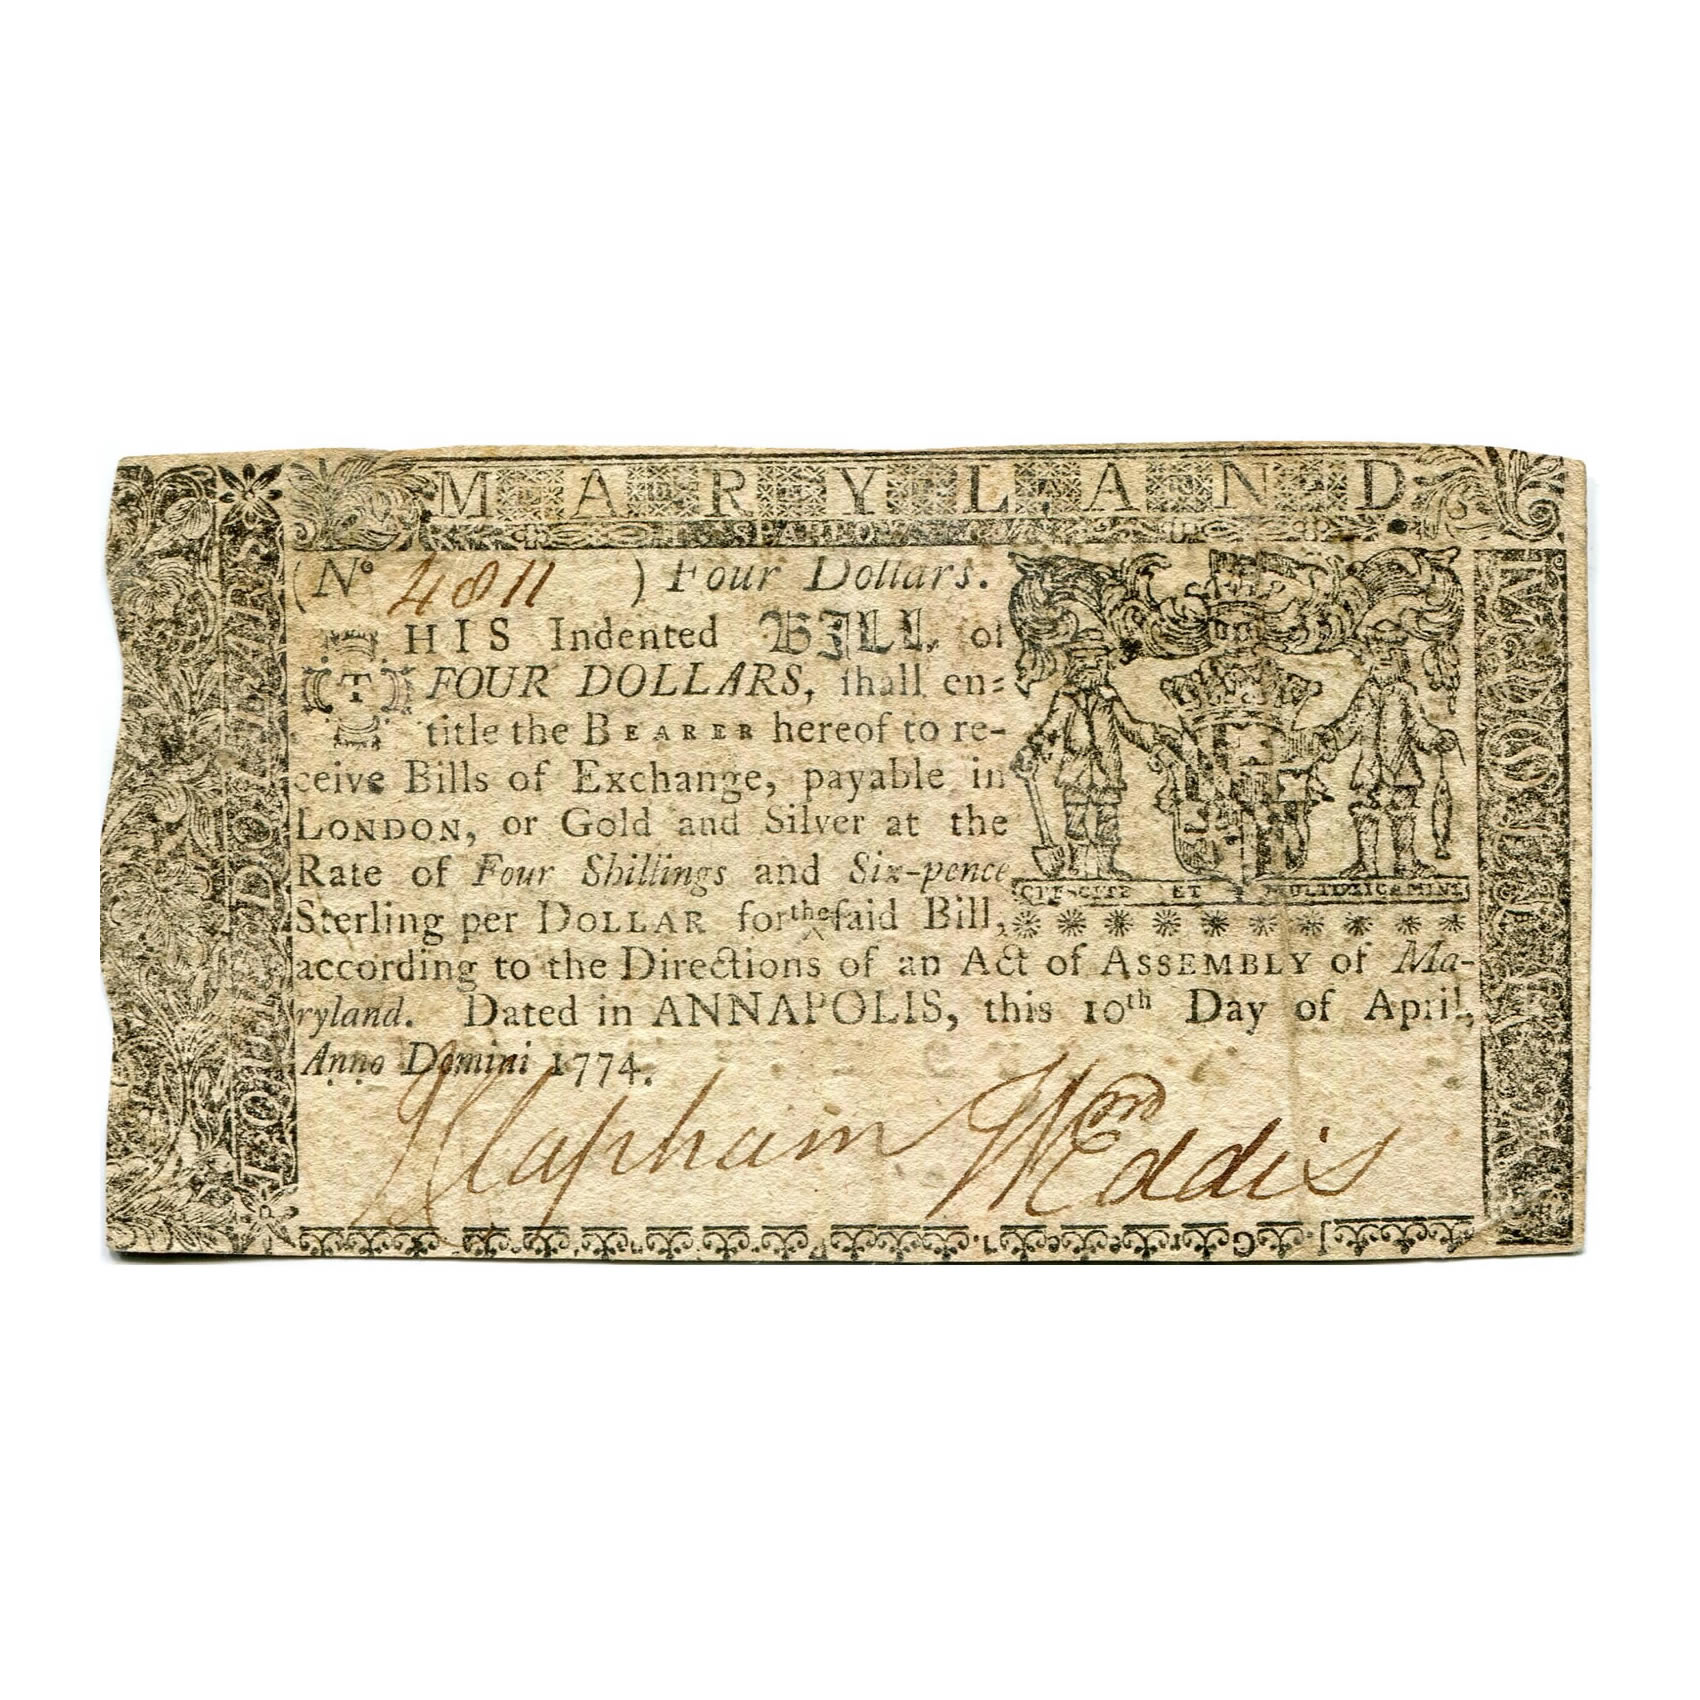 MARYLAND.
(No 4811 ) Four Dollars.
THIS Indented BILL of
FOUR DOLLARS, ſhall en-
title the BEARER hereof to re-
ceive Bills of Exchange, payable in
LONDON, or Gold and Silver at the
Rate of Four Shillings and Six-pence
Sterling per DOLLAR for the ſaid Bill,
according to the Directions of an Act of ASSEMBLY of Ma-
ryland. Dated in ANNAPOLIS, this 10th Day of April,
Anno Domini 1774.
J Clapham Wm Eddis
FOUR DOLLARS
CRESCITE ET MULTIPLICAMINI